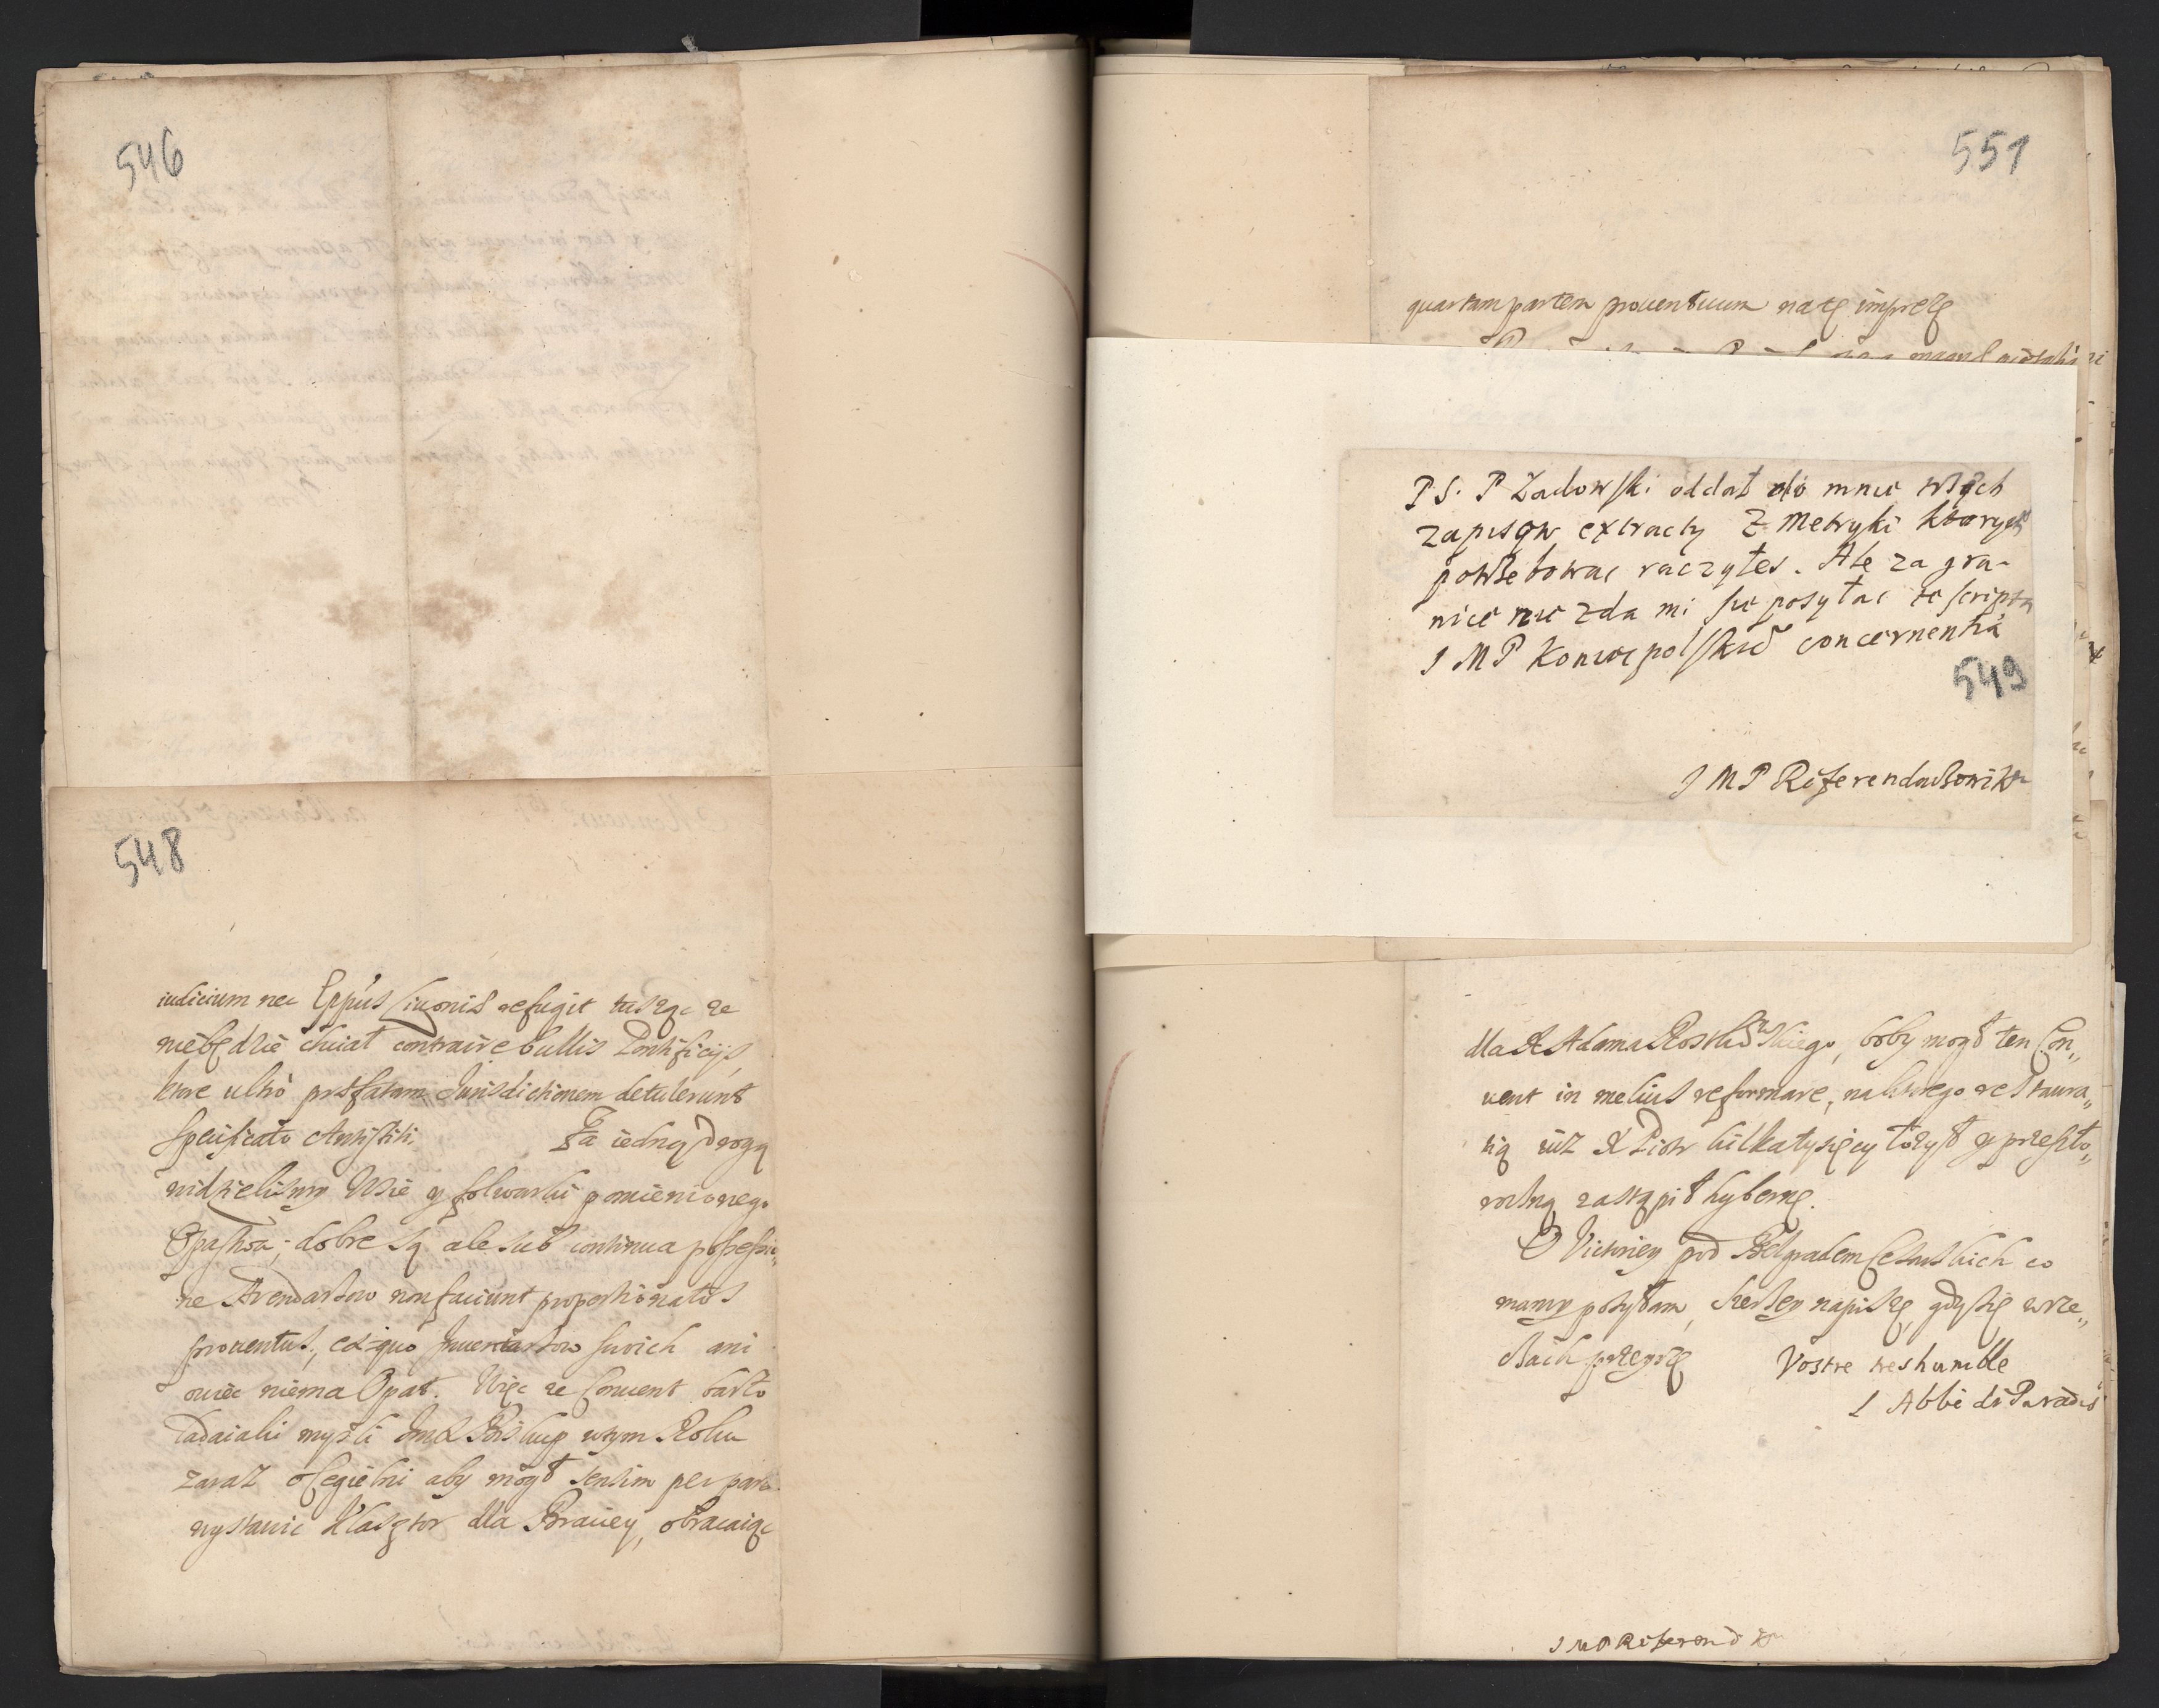 546
548
iudicium nec Eppus Livoniæ refugit tusząc ze
niebędzie chciał contraire bullis Pontificijs
ktore ultrò præfatam Jurisdictionem detulerunt
specificato Antistiti. Ta iedną drogą
widzielismy Wsie y folwarki pomienionego
Opastwa; dobre są ale sub continua possessio„
ne Arendarzow non faciunt proportionatos
prouentus, ex quo Inuentarzow swoich ani
owiec niema Opat. Więc ze Conuent barzo
ladaiaki mysli Imć X Biskup wtym Roku
zaraz o Cegielni aby mógł sensim per
wystawic Klasztor dla Braciey, obracaiąc
551
quartam partem prouentuum na tę imprezę
PS. P Zadowski oddał do mnie wszych
zapisow extracty Z Metryki ktorych
potrzebowac raczyłes. Ale za gra-
nice nie zda mi się posyłac te scripta
J M P Koniecpolskie concernentia
549
J M P Referendarzowi
dla X Adama, boby mogł ten Con„
uent in melius reformare, na ktorego restaura„
tią iuz X Piotr kilka tysięcy łożył y przeszło„
roczną zastąpił hybernę.
O Victoriey pod Belgradem Cesarskich co
mamy posyłam, szerzey napiszę, gdy się w rze„
czach przeyrzę Vostre tres humble
L Abbé de Paradis
J M P Referend